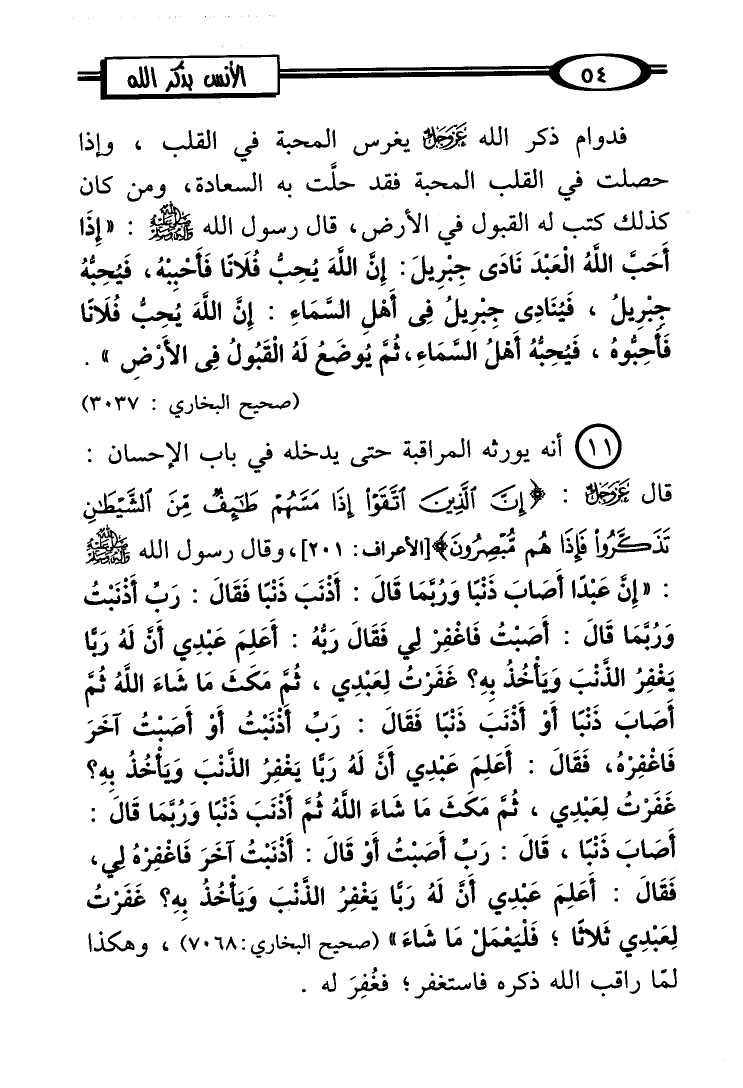 الأنس بذكر الله
٥٤
فدوام ذكر الله عَزَّوَجَلَّ يغرس المحبة في القلب ، وإذا
حصلت في القلب المحبة فقد حلَّت به السعادة، ومن كان
كذلك كتب له القبول في الأرض، قال رسول الله ﷺ : «إِذَا
أَحَبَّ اللَّهُ الْعَبْدَ نَادَى جِبْرِيلَ: إِنَّ اللَّهَ يُحِبُّ فُلَانًا فَأَحْبِبْهُ، فَيُحِبُّهُ
جِبْرِيلُ ، فَيُنَادِي جِبْرِيلُ فِي أَهْلِ السَّمَاءِ : إِنَّ اللَّهَ يُحِبُّ فُلَانًا
فَأَحِبُّوهُ ، فَيُحِبُّهُ أَهْلُ السَّمَاءِ، ثُمَّ يُوضَعُ لَهُ الْقَبُولُ فِي الأَرْضِ » .
(صحيح البخاري : ٣٠٣٧)
١١ أنه يورثه المراقبة حتى يدخله في باب الإحسان :
قال عَزَّوَجَلَّ : ﴿إِنَّ ٱلَّذِينَ ٱتَّقَوْا۟ إِذَا مَسَّهُمْ طَٰٓئِفٌ مِّنَ ٱلشَّيْطَٰنِ
تَذَكَّرُوا۟ فَإِذَا هُم مُّبْصِرُونَ﴾[الأعراف: ٢٠١]، وقال رسول الله ﷺ
: «إِنَّ عَبْدًا أَصَابَ ذَنْبًا وَرُبَّمَا قَالَ : أَذْنَبَ ذَنْبًا فَقَالَ : رَبِّ أَذْنَبْتُ
وَرُبَّمَا قَالَ : أَصَبْتُ فَاغْفِرْ لِي فَقَالَ رَبُّهُ : أَعَلِمَ عَبْدِي أَنَّ لَهُ رَبًّا
يَغْفِرُ الذَّنْبَ وَيَأْخُذُ بِهِ؟ غَفَرْتُ لِعَبْدِي ، ثُمَّ مَكَثَ مَا شَاءَ اللَّهُ ثُمَّ
أَصَابَ ذَنْبًا أَوْ أَذْنَبَ ذَنْبًا فَقَالَ : رَبِّ أَذْنَبْتُ أَوْ أَصَبْتُ آخَرَ
فَاغْفِرْهُ، فَقَالَ : أَعَلِمَ عَبْدِي أَنَّ لَهُ رَبًّا يَغْفِرُ الذَّنْبَ وَيَأْخُذُ بِهِ؟
غَفَرْتُ لِعَبْدِي ، ثُمَّ مَكَثَ مَا شَاءَ اللَّهُ ثُمَّ أَذْنَبَ ذَنْبًا وَرُبَّمَا قَالَ :
أَصَابَ ذَنْبًا ، قَالَ : رَبِّ أَصَبْتُ أَوْ قَالَ : أَذْنَبْتُ آخَرَ فَاغْفِرْهُ لِي،
فَقَالَ : أَعَلِمَ عَبْدِي أَنَّ لَهُ رَبًّا يَغْفِرُ الذَّنْبَ وَيَأْخُذُ بِهِ؟ غَفَرْتُ
لِعَبْدِي ثَلَاثًا ؛ فَلْيَعْمَلْ مَا شَاءَ» (صحيح البخاري: ٧٠٦٨) ، وهكذا
لمّا راقب الله ذكره فاستغفر؛ فغُفِرَ له .